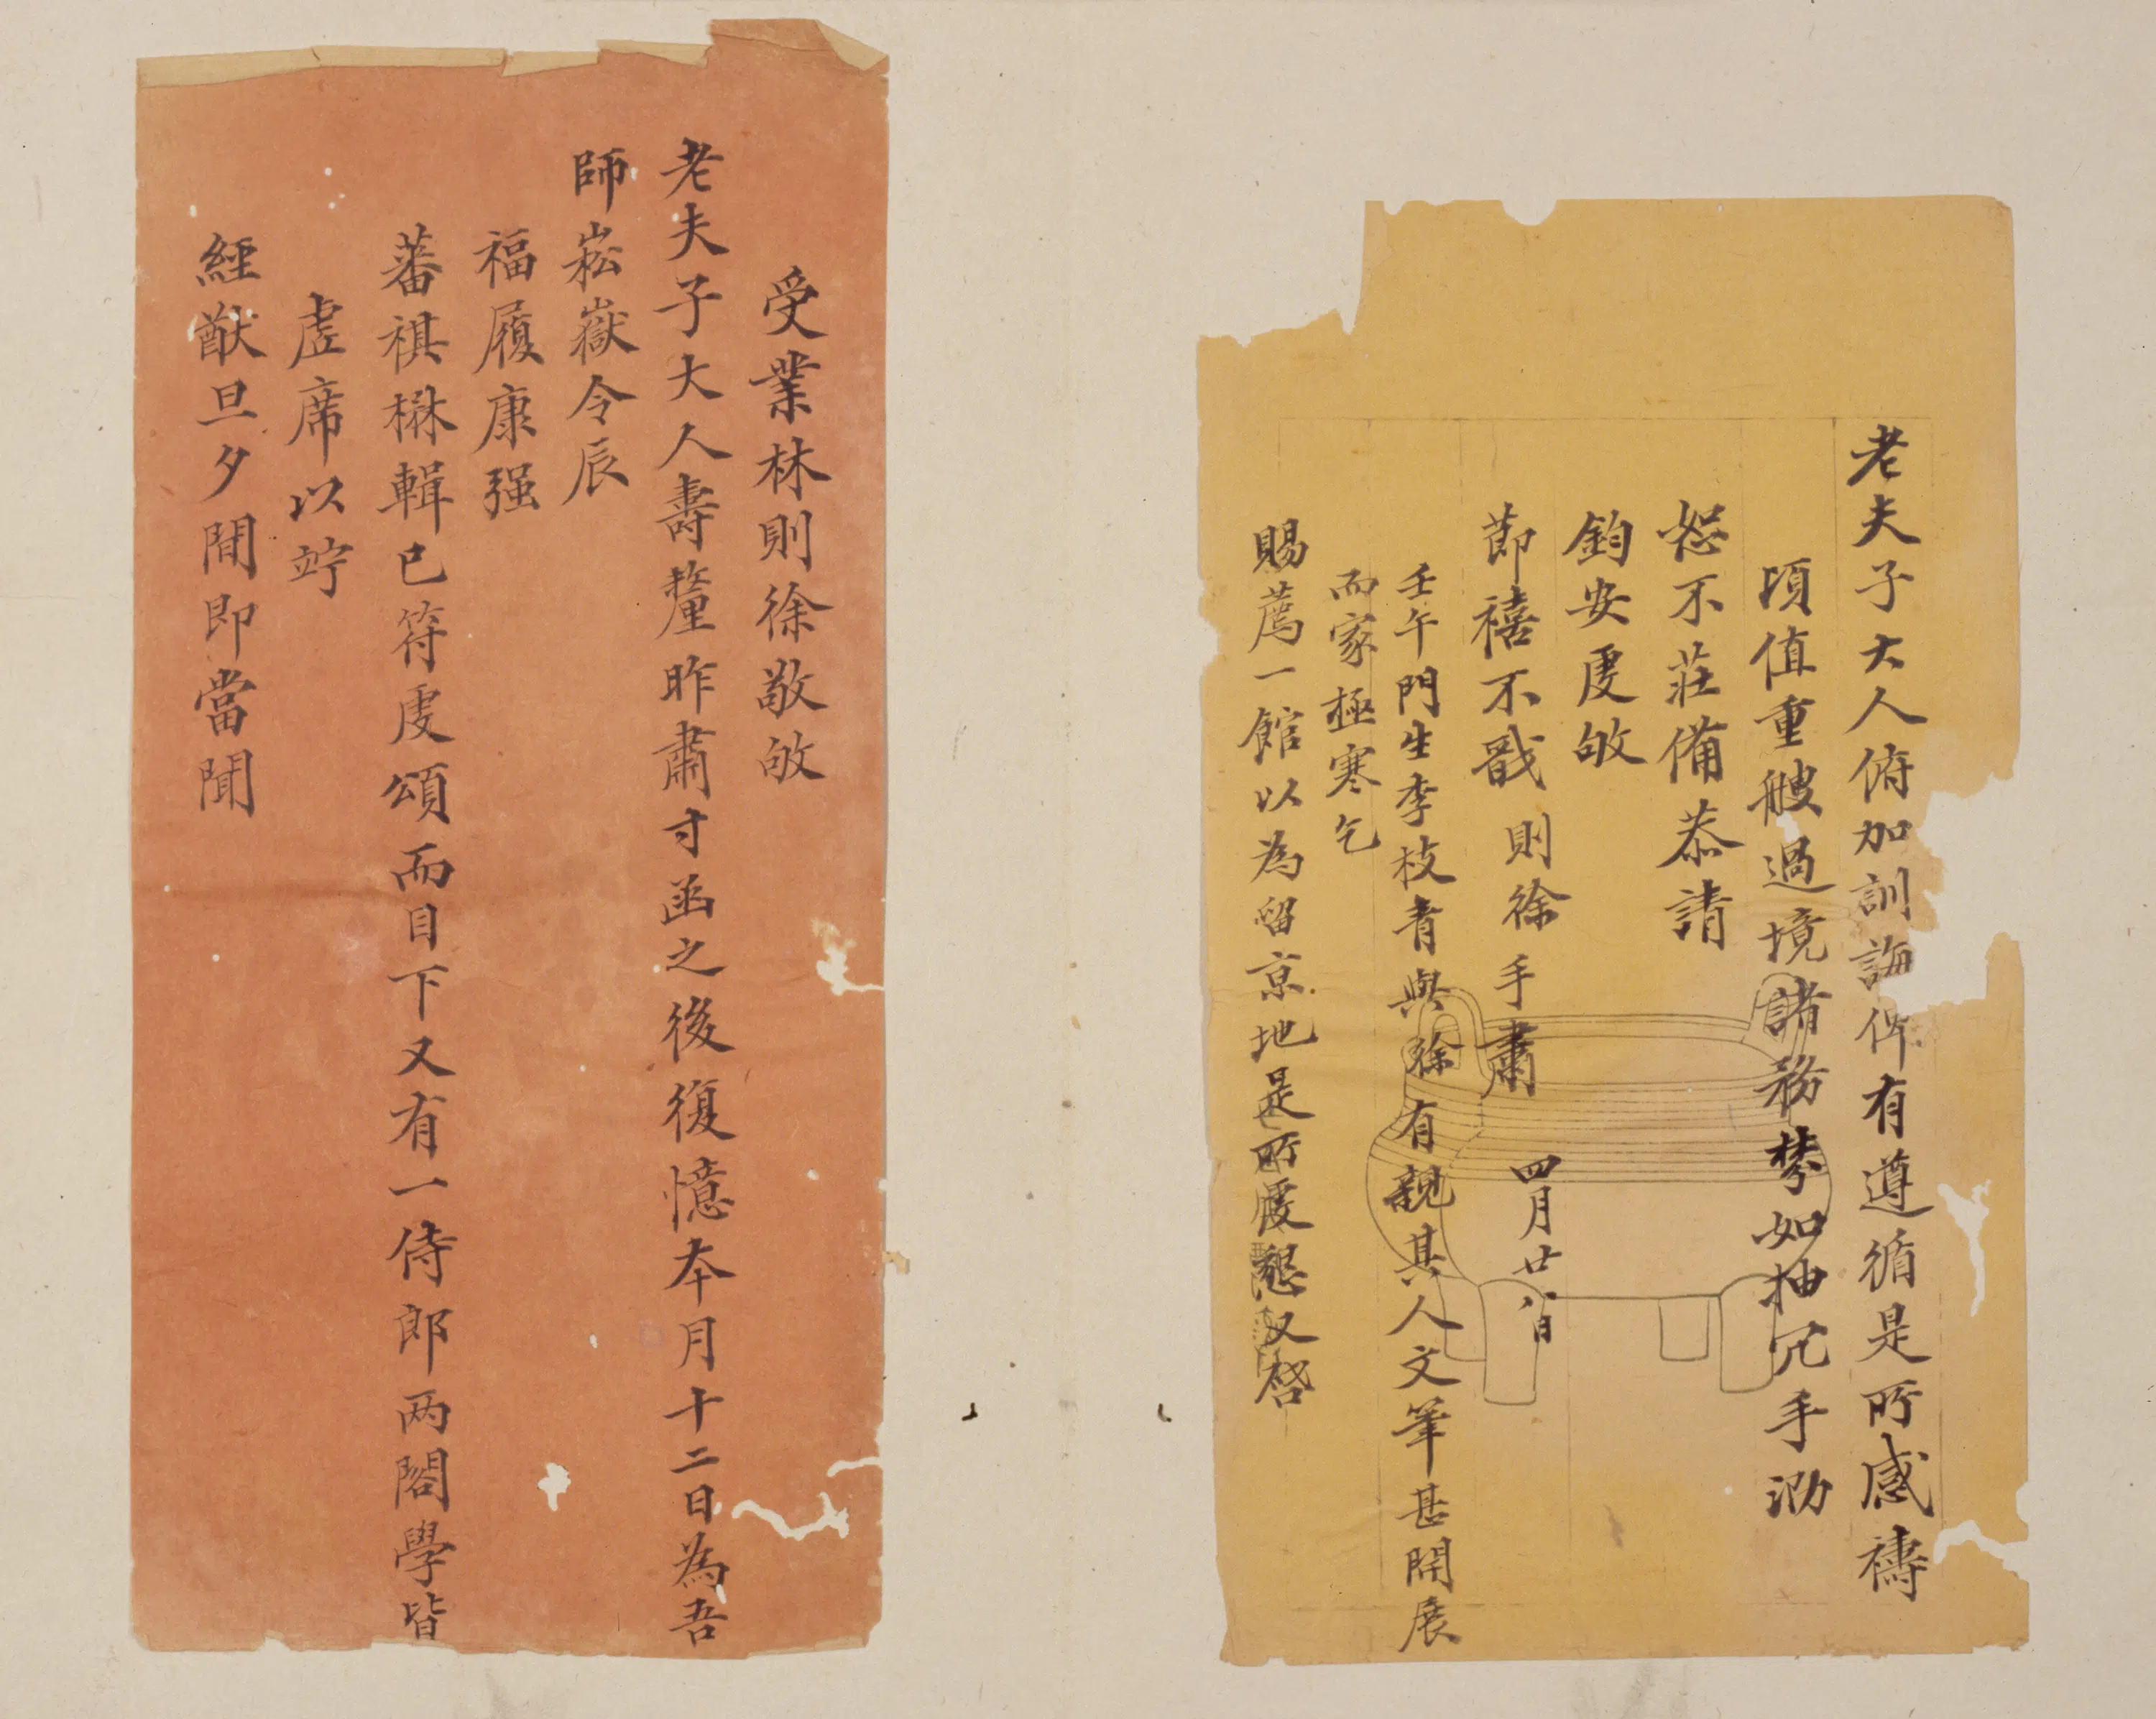 老夫子大人俯加訓誨俾有遵循是所感禱
頃值重艘過境諸務棼如抽冗手泐
恕不莊備恭請
鈞安虔敂
節禧不戬 則徐手肅 四月廿八日
壬午門生李枝青與徐有親其人文筆甚開展
而家極寒乞
賜薦一館以為留京地是所虔懇又啓
受業林則徐敬敂
老夫子大人壽釐昨肅寸函之後復憶本月十二日為吾
師崧嶽令辰
福履康强
蕃祺楙輯已符虔頌而目下又有一侍郎两閣學皆
虛席以竚
經猷旦夕間即當聞